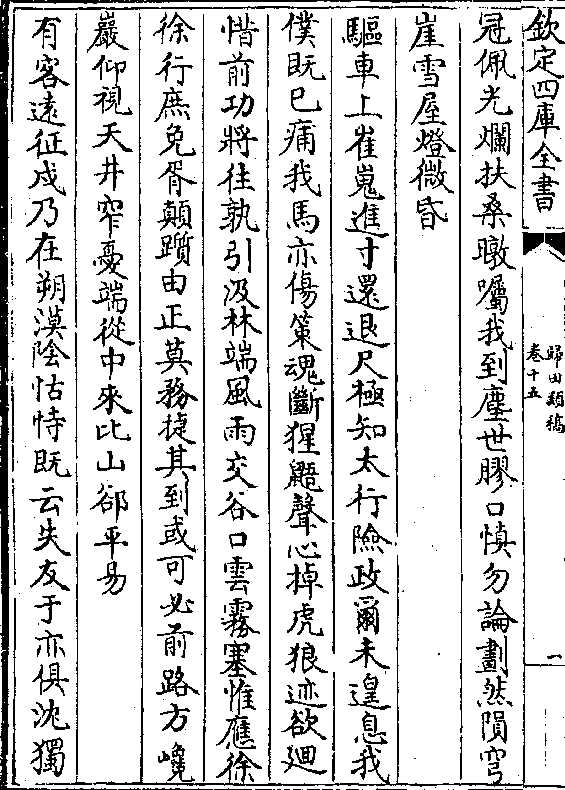 欽定四庫全書
歸田類稿
卷十五
一
冠佩光爛扶桑暾囑我到塵世膠口慎勿論劃然隕穹
崖雪屋燈微昏
驅車上崔嵬進寸還退尺極知太行險政爾未遑息我
僕既已痛我馬亦傷策魂斷猩鼯聲心掉虎狼迹欲迴
惜前功將往孰引汲林端風雨交谷口雲霧塞惟應徐
徐行庶免胥顛躓由正莫務捷其到或可必前路方巉
巖仰視天井窄憂端從中來比山卻平易
有客遠征戍乃在朔漠陰怙恃既云失友于亦俱沈獨